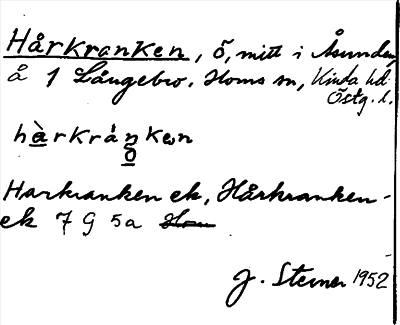 Hårkranken, ö, mitt i Åsunden,
å 1 Långebro. Horns sn, Kinda hd.
Östg. l.
hàrkrán̥ken
Harkranken ek, Hårkranken-
ek 7 G 5a Horn
J. Steiner 1952